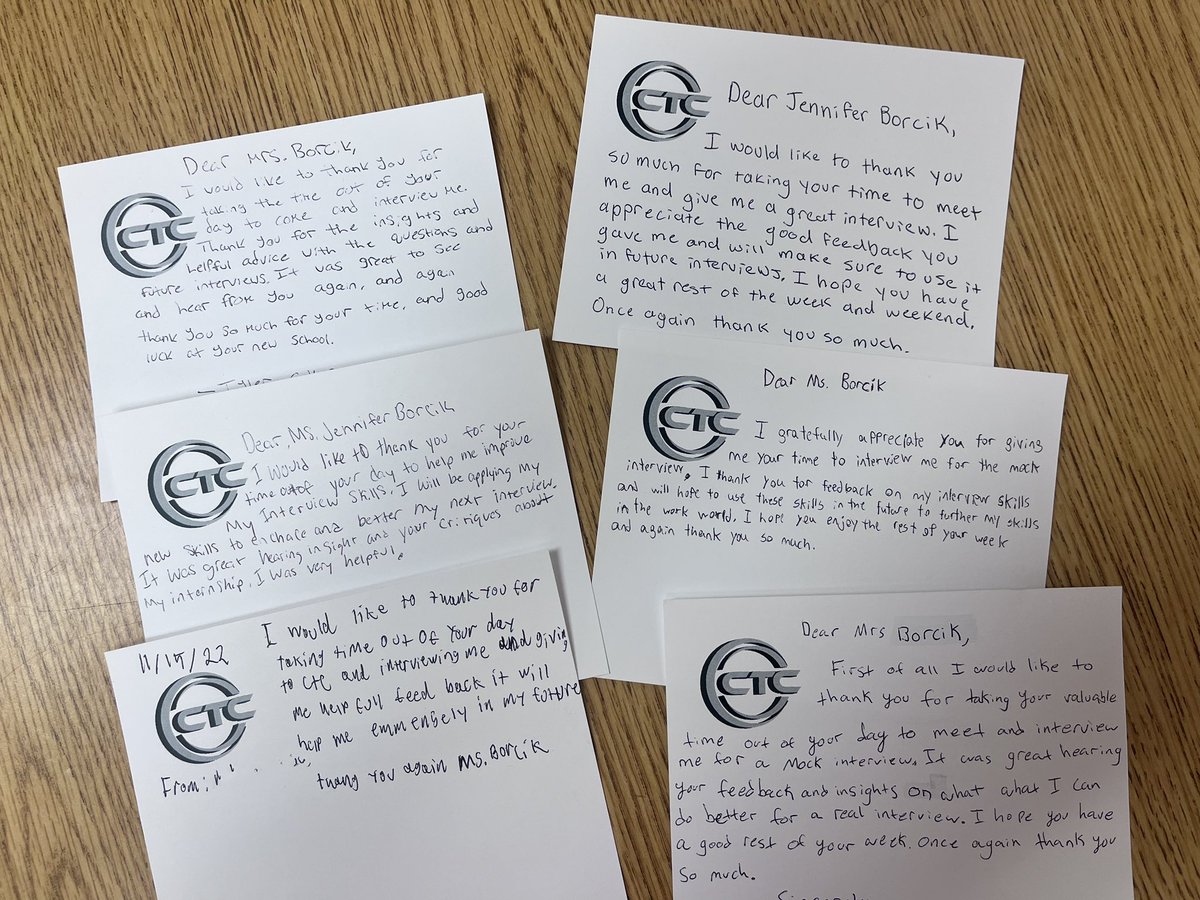 Dear Mrs. Borcik,
I would like to thank you for
taking the time out of your
day to come and interview me.
CTC
Thank you for the insights and
helpful advice with the questions and
future interviews. It was great to see
and hear from you again, and again
thank you so much for your time, and good
luck at your new school.
— Tyler
Dear, Ms. Jennifer Borcik
I would like to thank you for your
time out of your day to help me improve
CTC
My Interview skills. I will be applying my
new skills to enchance and better my next interview.
It was great hearing insight and your critiques about
my internship. I was very helpful.
11/15/22
I would like to thank you for
taking time out of your day
to CTC and interviewing me and giving
CTC
me help full feed back it will
help me emmensely in my future
From:
thang you again Ms. Borcik
CTC
Dear Jennifer Borcik,
I would like to thank you
so much for taking your time to meet
me and give me a great interview. I
appreciate the good feedback you
gave me and will make sure to use it
in future interviews. I hope you have
a great rest of the week and weekend.
Once again thank you so much.
Dear Ms. Borcik
CTC
I gratefully appreciate you for giving
me your time to interview me for the mock
interview. I thank you for feedback on my interview skills
and will hope to use these skills in the future to further my skills
in the work world. I hope you enjoy the rest of your week
and again thank you so much.
Dear Mrs Borcik,
CTC
First of all I would like to
thank you for taking your valuable
time out of your day to meet and interview
me for a Mock interview. It was great hearing
your feedback and insights on what what I can
do better for a real interview. I hope you have
a good rest of your week. Once again thank you
so much.